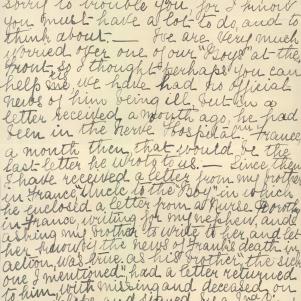 sorry to trouble you, for I know
you must have a lot to do, and to
think about. — We are very much
worried over one of our "Boys" at the
Front, so I thought perhaps you can
help me we have had no official
news of him being ill, but in a
letter received a month ago, he had
been in the nerve Hospital in France
a month then, that would be the
last letter he wrote to us. — Since then
I have received a letter from my brother
in France "Uncle to the Boy" in which
he enclosed a letter from a Nurse
in France, writing for my nephew, and
asking my brother to write to her, and let
her know if the news of Frank's death in
action, was true, as his brother the sick
one I mentioned had a letter returned
to him, with missing and deceased on
and signed